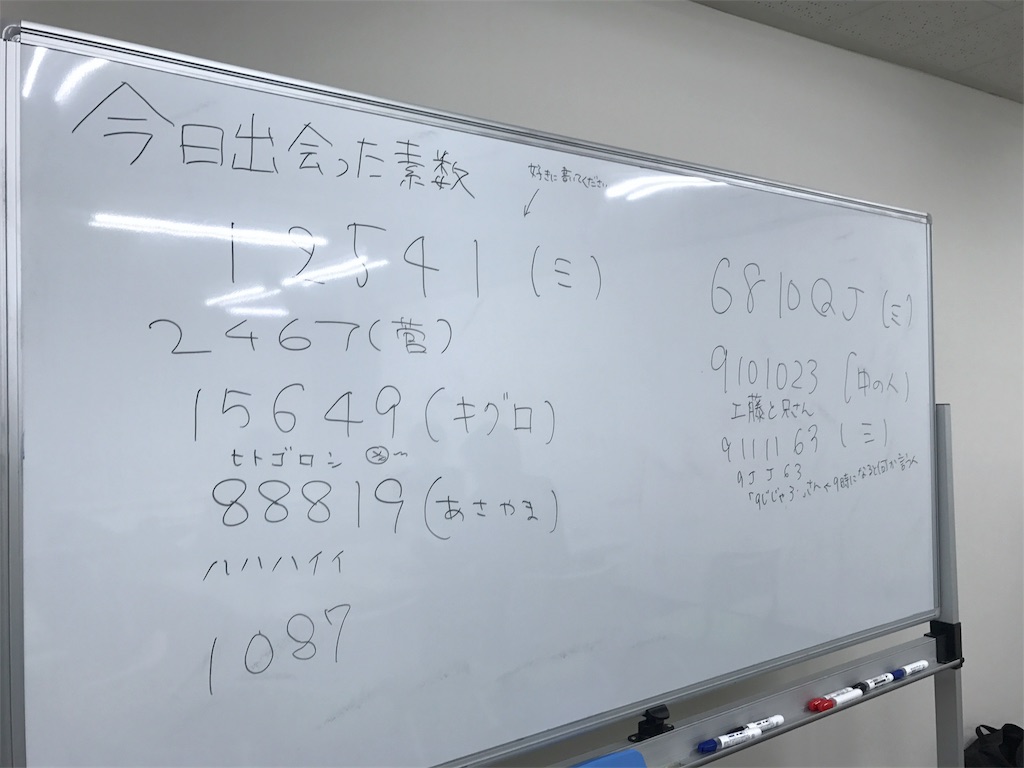 今日出会った素数
好きに書いてください
12541 (ミ)
2467 (菅)
15649 (キグロ)
ヒトゴロシ
88819 (あさやま)
ハハハイイ
1087
6810QJ (ミ)
9101023 (中の人)
工藤と兄さん
9111163 (ミ)
9JJ63
「9じじゃろ
9時になると
言う人